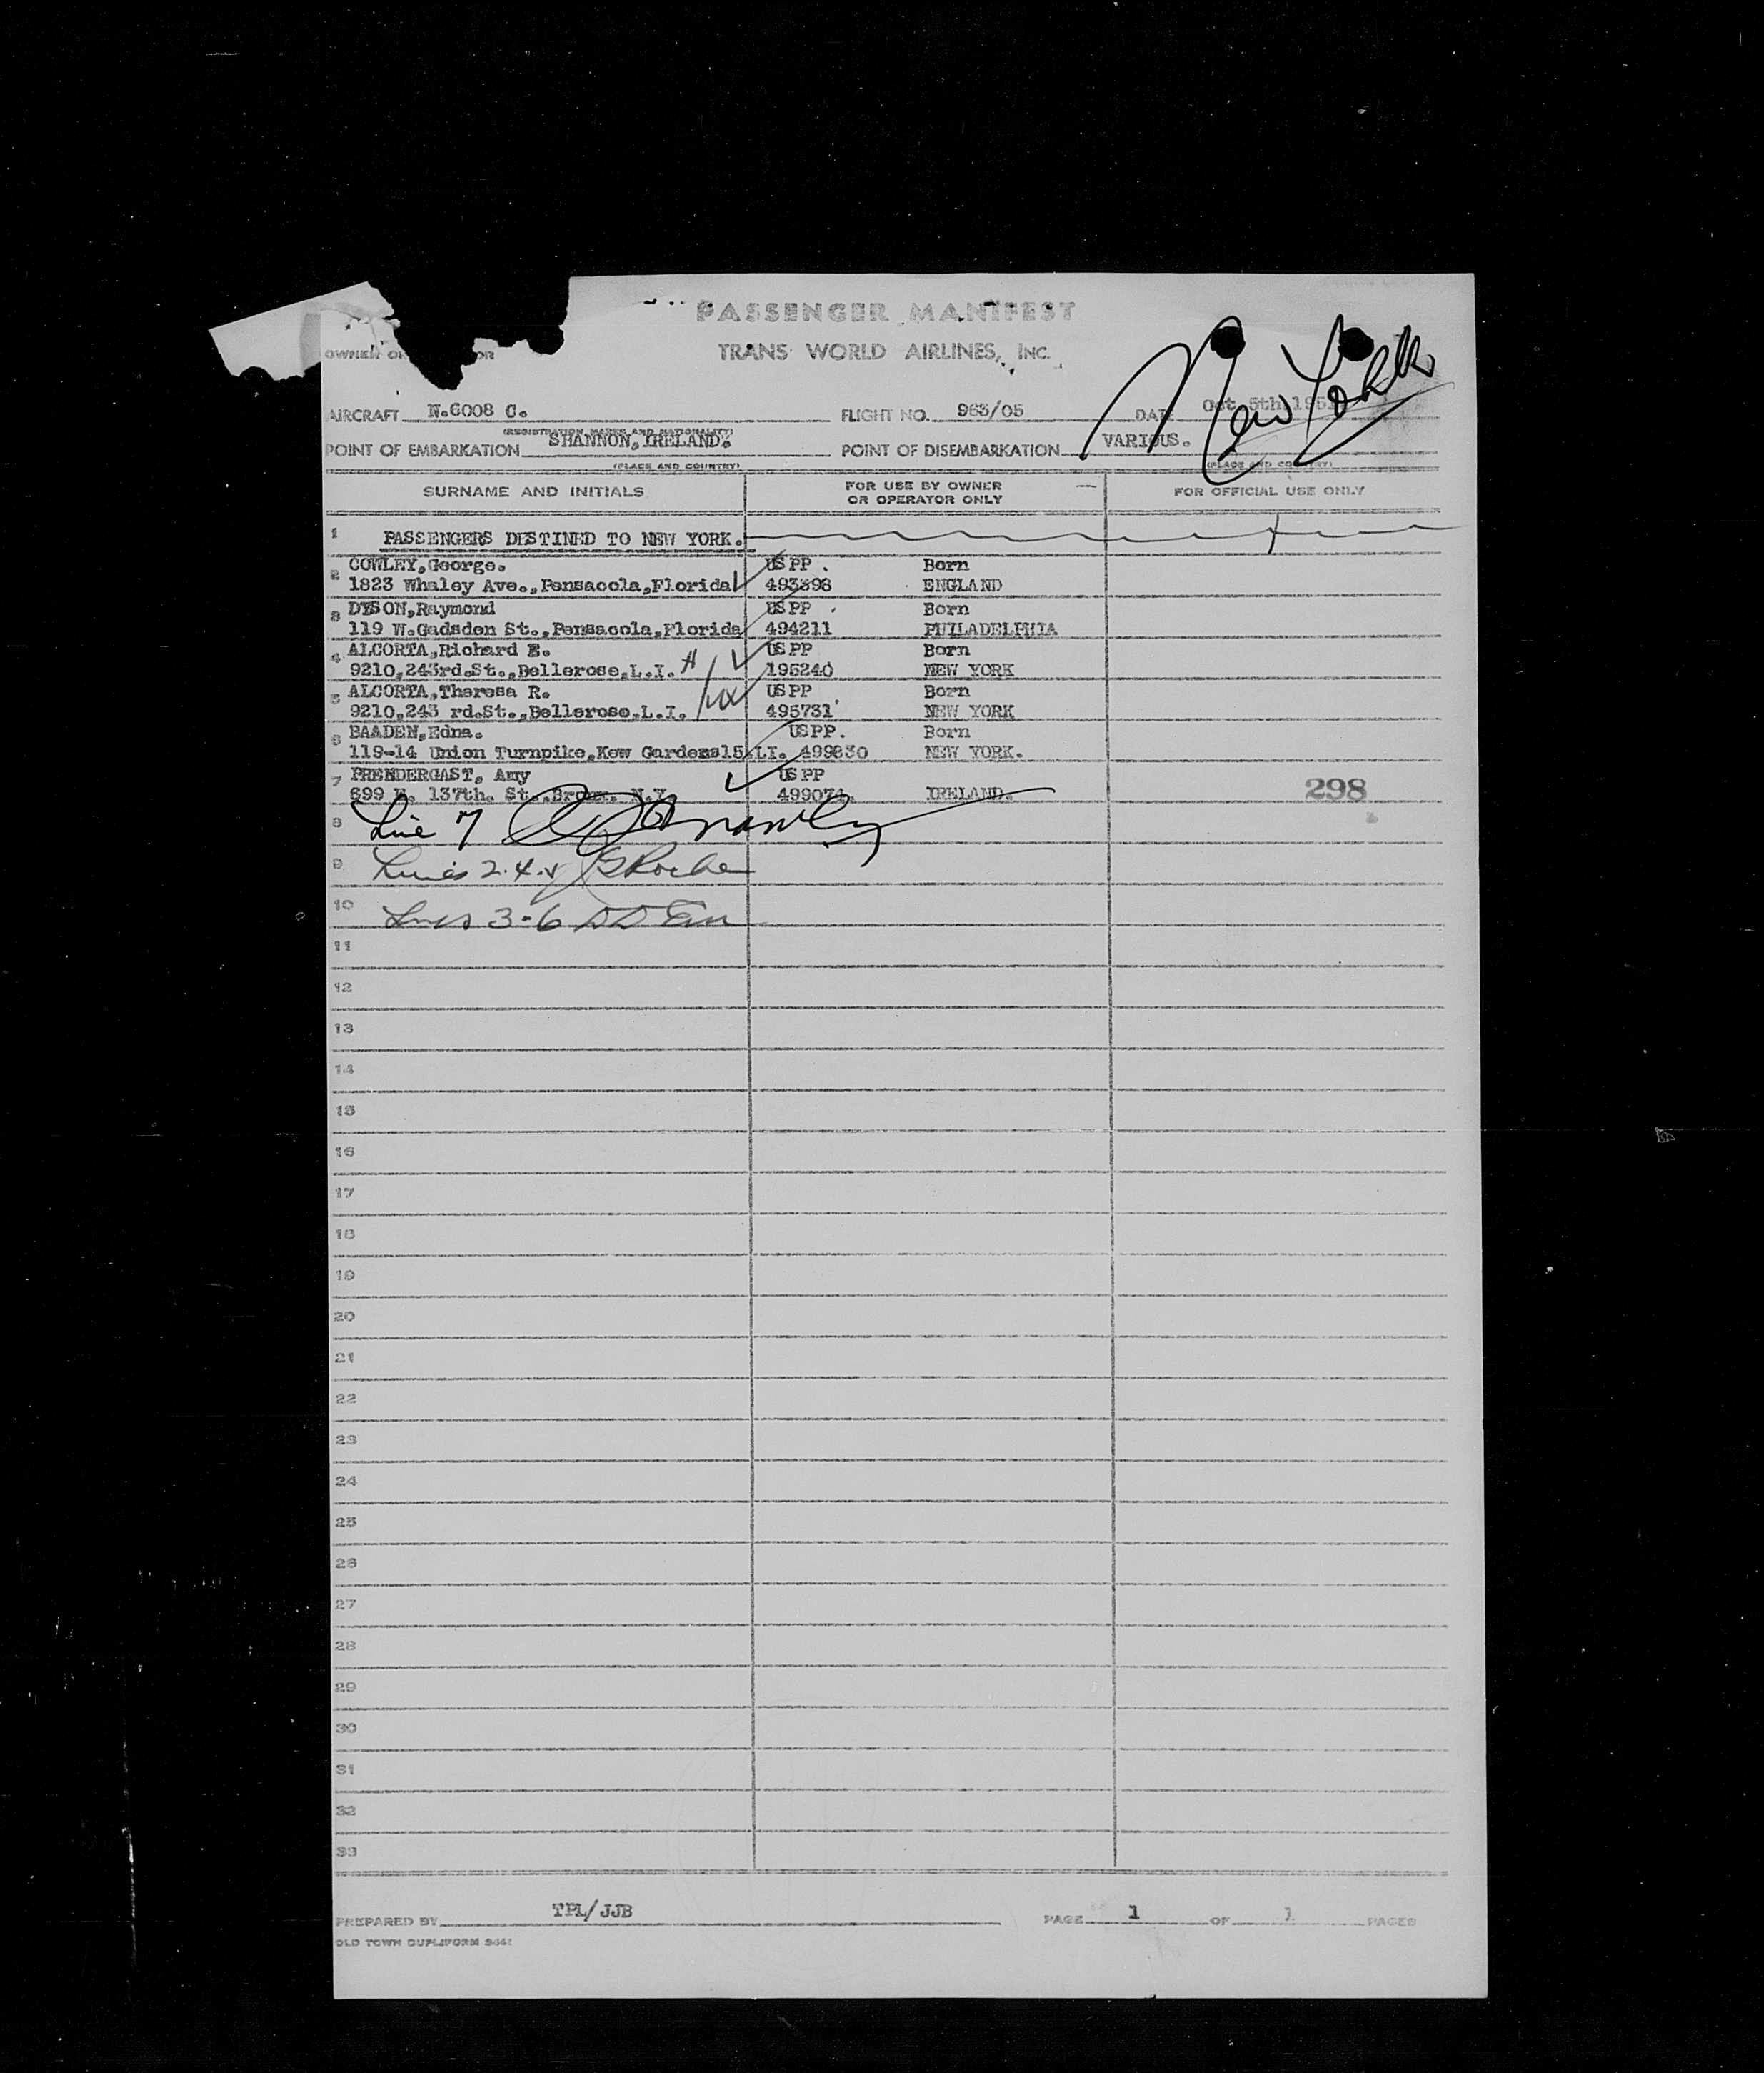 PASSENGER MANIFEST
OWNER OR
TRANS WORLD AIRLINES, INC.
AIRCRAFT N.6008 C. FLIGHT NO. 963/05 DATE Oct 5th, 195
(REGISTRATION MARKS AND NATIONALITY)
POINT OF EMBARKATION SHANNON, IRELAND. POINT OF DISEMBARKATION VARIOUS. New York
(PLACE AND COUNTRY) (PLACE AND COUNTRY)
SURNAME AND INITIALS FOR USE BY OWNER OR OPERATOR ONLY FOR OFFICIAL USE ONLY
1 PASSENGERS DISTINED TO NEW YORK.
2 COWLEY,George. US PP . Born
1823 Whaley Ave.,Pensacola,Florida 493398 ENGLAND
3 DYSON,Raymond US PP . Born
119 W.Gadsden St.,Pensacola,Florida 494211 PHILADELPHIA
4 ALCORTA,Richard E. US PP Born
9210,243rd.St.,Bellerose,L.I. 195240 NEW YORK
5 ALCORTA,Theresa R. US PP Born
9210,243 rd.St.,Bellerose,L.I. 495731 NEW YORK
6 BAADEN,Edna. USPP. Born
119-14 Union Turnpike,Kew Gardens15,LI. 499830 NEW YORK.
7 PRENDERGAST, Amy US PP
699 E. 137th. St.,Bronx. N.Y. 499074. IRELAND. 298
8 Line 7
9 Lines 2.4.
10 Lines 3-6
11
12
13
14
15
16
17
18
19
20
21
22
23
24
25
26
27
28
29
30
31
32
33
PREPARED BY TPL/JJB PAGE 1 OF 1 PAGES
OLD TOWN DUPLIFORM